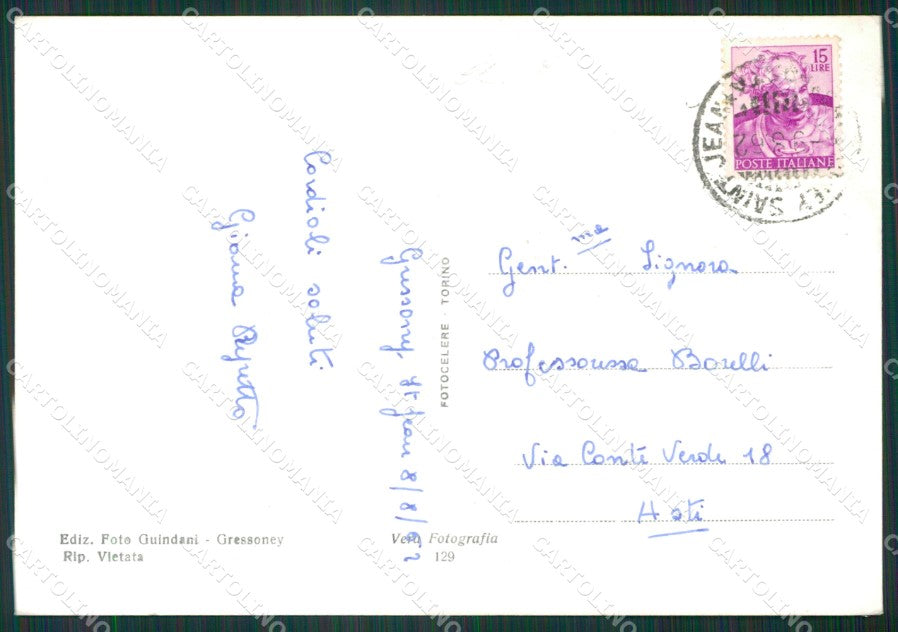 15
LIRE
POSTE ITALIANE
SAINT JEAN
62
Cordiali saluti
Gianna Repetto
Gressoney St Jean 8/8/62
FOTOCELERE - TORINO
Gent.ma Signora
Professoressa Borelli
Via Conte Verde 18
Asti
Ediz. Foto Guindani - Gressoney
Rip. Vietata
Vera Fotografia
129
CARTOLINOMANIA